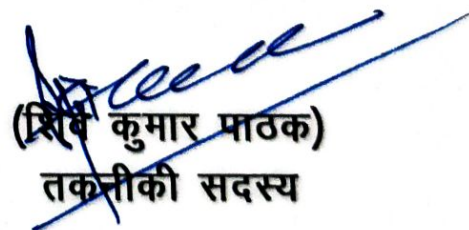 (शिव कुमार पाठक)
तकनीकी सदस्य